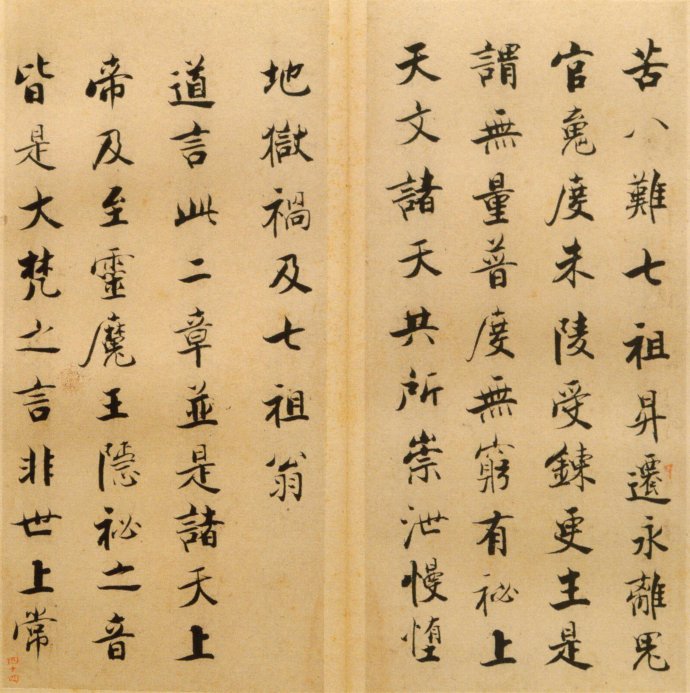 苦八難七祖昇遷永離鬼
官魂度朱陵受鍊更生是
謂無量普度無窮有祕上
天文諸天共所崇泄慢墮
地獄禍及七祖翁
道言此二章並是諸天上
帝及至靈魔王隱祕之音
皆是大梵之言非世上常
四十四